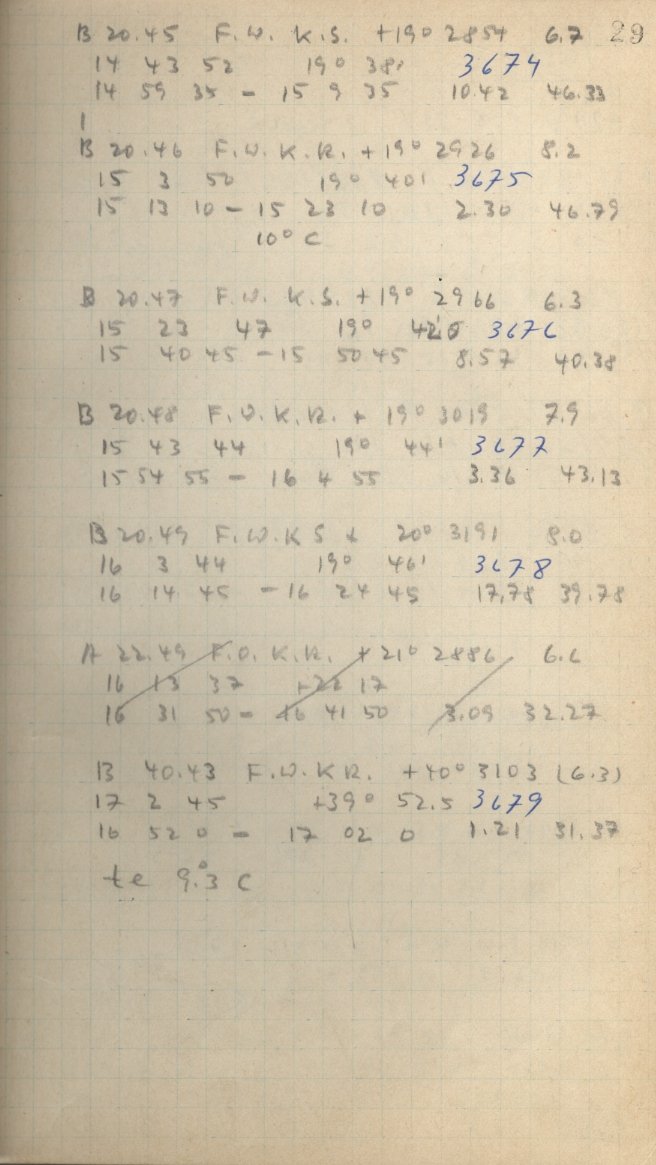 B 20.45 F.W. K.S. +19° 2854 6.7 29
14 43 52 19° 38' 3674
14 59 35 - 15 9 35 10.42 46.33
1
B 20.46 F.W. K.R. +19° 2926 8.2
15 3 50 19° 40' 3675
15 13 10 - 15 23 10 2.30 46.79
10° C
B 20.47 F.W. K.S. +19° 2966 6.3
15 23 47 19° 3676
15 40 45 - 15 50 45 8.57 40.38
B 20.48 F.W. K.R. + 19° 3019 7.9
15 43 44 19° 44' 3677
15 54 55 - 16 4 55 3.36 43.13
B 20.49 F.W. K S + 20° 3191 8.0
16 3 44 19° 46' 3678
16 14 45 - 16 24 45 17,78 39.78
A 22.49 F.O. K.R. +21° 2886 6.6
16 13 37 +22 17
16 31 50 - 16 41 50 3.09 32.27
B 40.43 F.W. K R. +40° 3103 (6.3)
17 2 45 +39° 52.5 3679
16 52 0 - 17 02 0 1.21 31.37
te 9.°3 C